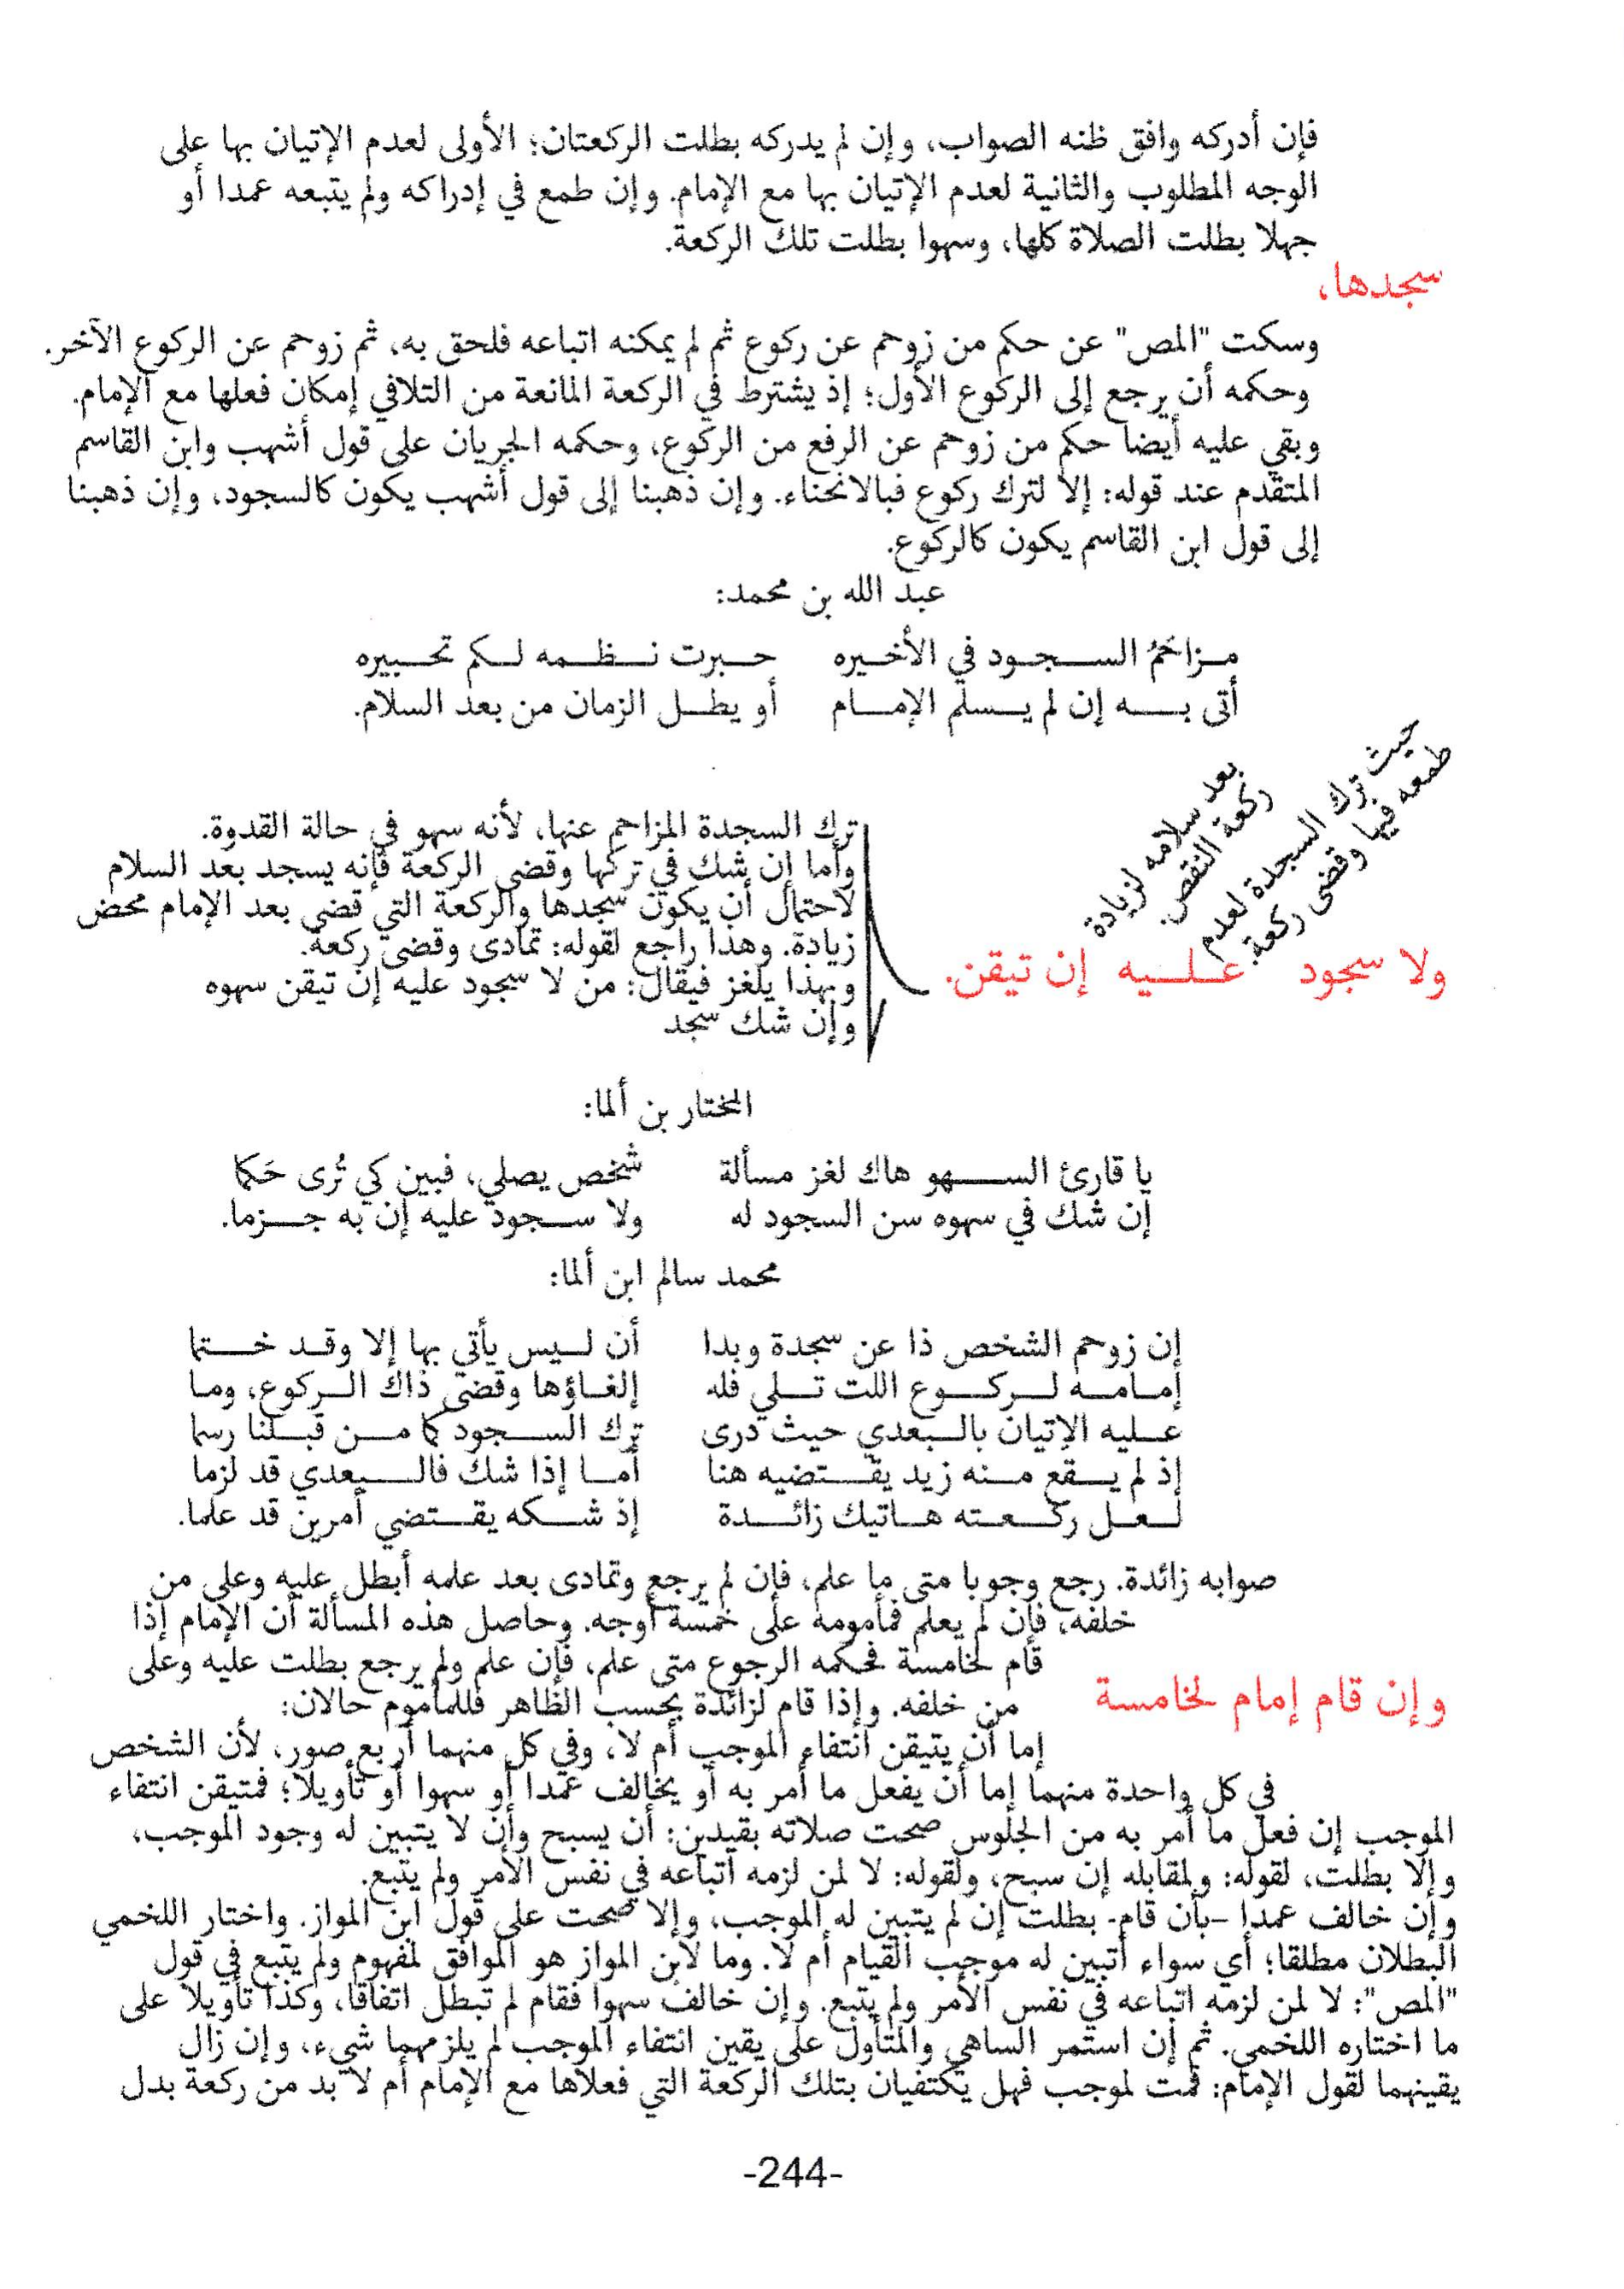 فإن أدركه وافق ظنه الصواب، وإن لم يدركه بطلت الركعتان؛ الأولى لعدم الإتيان بها على
الوجه المطلوب والثانية لعدم الإتيان بها مع الإمام. وإن طمع في إدراكه ولم يتبعه عمدا أو
جهلا بطلت الصلاة كلها، وسهوا بطلت تلك الركعة.
سجدها،
وسكت "المص" عن حكم من زوحم عن ركوع ثم لم يمكنه اتباعه فلحق به، ثم زوحم عن الركوع الآخر.
وحكمه أن يرجع إلى الركوع الأول؛ إذ يشترط في الركعة المانعة من التلافي إمكان فعلها مع الإمام.
وبقي عليه أيضا حكم من زوحم عن الرفع من الركوع، وحكمه الجريان على قول أشهب وابن القاسم
المتقدم عند قوله: إلا لترك ركوع فبالانحناء. وإن ذهبنا إلى قول أشهب يكون كالسجود، وإن ذهبنا
إلى قول ابن القاسم يكون كالركوع.
عبد الله بن محمد:
مزاحَمُ السجود في الأخيره حبرت نظمه لكم تحبيره
أتى به إن لم يسلم الإمام أو يطل الزمان من بعد السلام.
ولا سجود عليه إن تيقن.
حيث ترك السجدة لعدم
طمعه فيها وقضى ركعة.
بعد سلامه لزيادة
ركعة النقص.
ترك السجدة المزاحم عنها، لأنه سهو في حالة القدوة.
وأما إن شك في تركها وقضى الركعة فإنه يسجد بعد السلام
لاحتمال أن يكون سجدها والركعة التي قضى بعد الإمام محض
زيادة. وهذا راجع لقوله: تمادى وقضى ركعة.
وبهذا يلغز فيقال: من لا سجود عليه إن تيقن سهوه
وإن شك سجد
المختار بن ألما:
يا قارئ السهو هاك لغز مسألة شخص يصلي، فبين كي تُرى حَكما
إن شك في سهوه سن السجود له ولا سجود عليه إن به جزما.
محمد سالم ابن ألما:
إن زوحم الشخص ذا عن سجدة وبدا أن ليس يأتي بها إلا وقد ختما
إمامه لركوع اللت تلي فله إلغاؤها وقضى ذاك الركوع، وما
عليه الإتيان بالبعدي حيث درى ترك السجود كما من قبلنا رسما
إذ لم يقع منه زيد يقتضيه هنا أما إذا شك فالبعدي قد لزما
لعل ركعته هاتيك زائدة إذ شكه يقتضي أمرين قد علما.
صوابه زائدة. رجع وجوبا متى ما علم، فإن لم يرجع وتمادى بعد علمه أبطل عليه وعلى من
خلفه، فإن لم يعلم فمأمومه على خمسة أوجه. وحاصل هذه المسألة أن الإمام إذا
قام لخامسة فحكمه الرجوع متى علم، فإن علم ولم يرجع بطلت عليه وعلى
وإن قام إمام لخامسة
من خلفه. وإذا قام لزائدة بحسب الظاهر فللمأموم حالان:
إما أن يتيقن انتفاء الموجب أم لا، وفي كل منهما أربع صور، لأن الشخص
في كل واحدة منهما إما أن يفعل ما أمر به أو يخالف عمدا أو سهوا أو تأويلا؛ فمتيقن انتفاء
الموجب إن فعل ما أمر به من الجلوس صحت صلاته بقيدين: أن يسبح وأن لا يتبين له وجود الموجب،
وإلا بطلت، لقوله: ولمقابله إن سبح، ولقوله: لا لمن لزمه اتباعه في نفس الأمر ولم يتبع.
وإن خالف عمدا -بأن قام- بطلت إن لم يتبين له الموجب، وإلا صحت على قول ابن المواز. واختار اللخمي
البطلان مطلقا؛ أي سواء أتبين له موجب القيام أم لا. وما لابن المواز هو الموافق لمفهوم ولم يتبع في قول
"المص": لا لمن لزمه اتباعه في نفس الأمر ولم يتبع. وإن خالف سهوا فقام لم تبطل اتفاقا، وكذا تأويلا على
ما اختاره اللخمي. ثم إن استمر الساهي والمتأول على يقين انتفاء الموجب لم يلزمهما شيء، وإن زال
يقينهما لقول الإمام: قمت لموجب فهل يكتفيان بتلك الركعة التي فعلاها مع الإمام أم لا بد من ركعة بدل
-244-